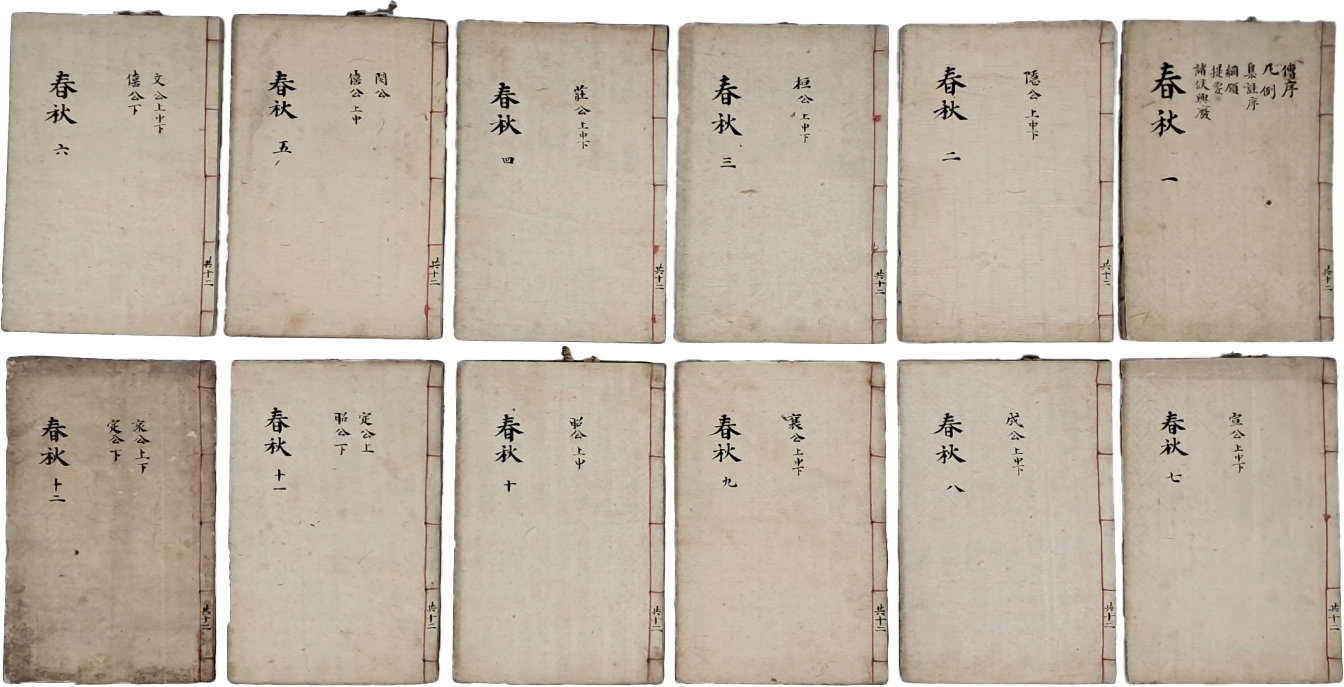 共十二
傳序
凡例
集註序
綱領
提要
諸侯興廢
春秋 一
共十二
隱公上中下
春秋 二
共十二
桓公上中下
春秋 三
共十二
莊公上中下
春秋 四
共十二
閔公
僖公上中
春秋 五
共十二
文公上中下
僖公下
春秋 六
共十二
宣公上中下
春秋 七
共十二
成公上中下
春秋 八
共十二
襄公上中下
春秋 九
共十二
昭公上中
春秋 十
共十二
定公上
昭公下
春秋 十一
共十二
哀公上下
定公下
春秋 十二